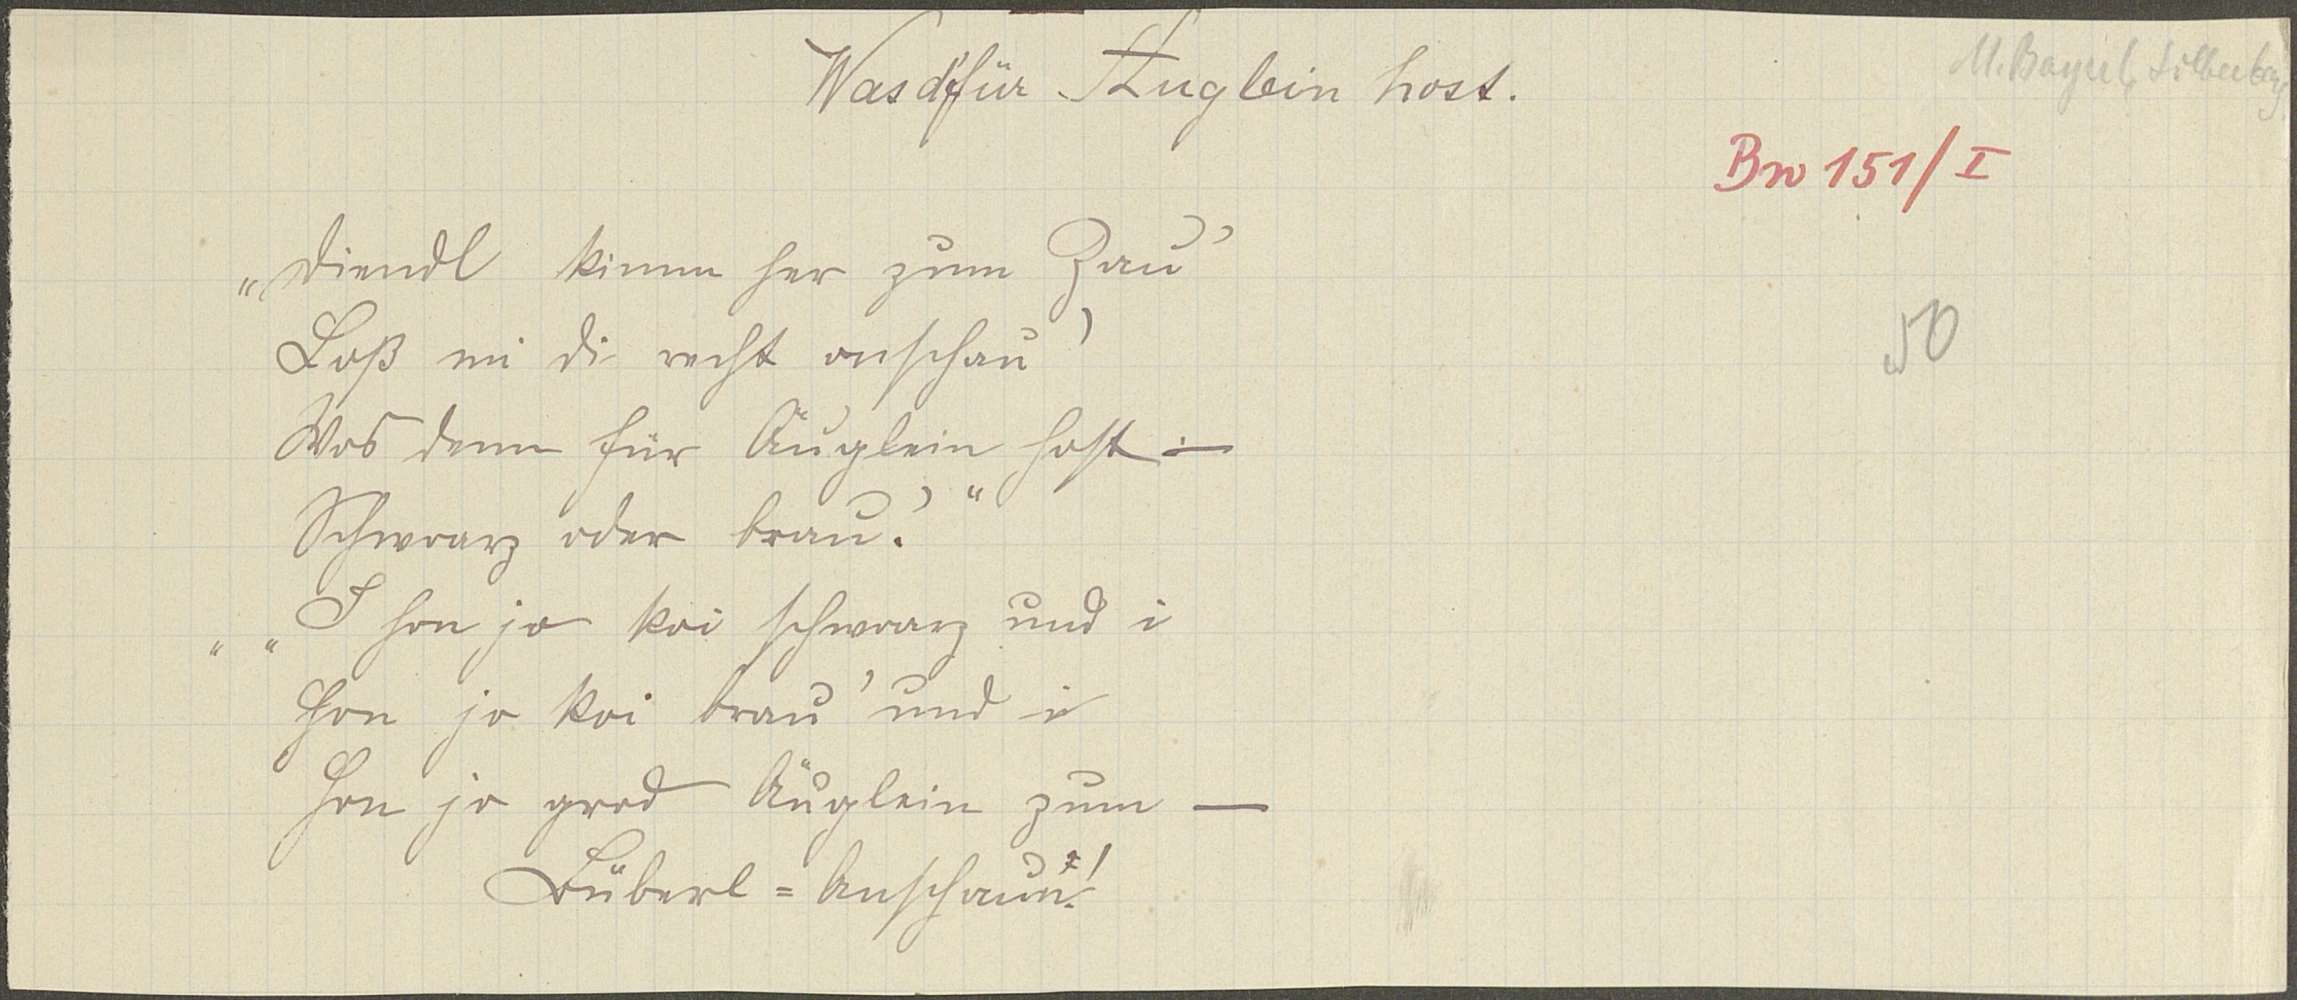 Was d' für Äuglein host.
M. Bayerl, Silberberg
Bw 151/I
50
„Diendl kimm her zum Zau'
Loß mi di recht onschau'
Wos denn für Äuglein host —
Schwarz oder brau'.“
„ „I hon jo koi schwarz und i
hon jo koi brau' und i
hon jo grod Äuglein zum —
Büberl = Anschaun!